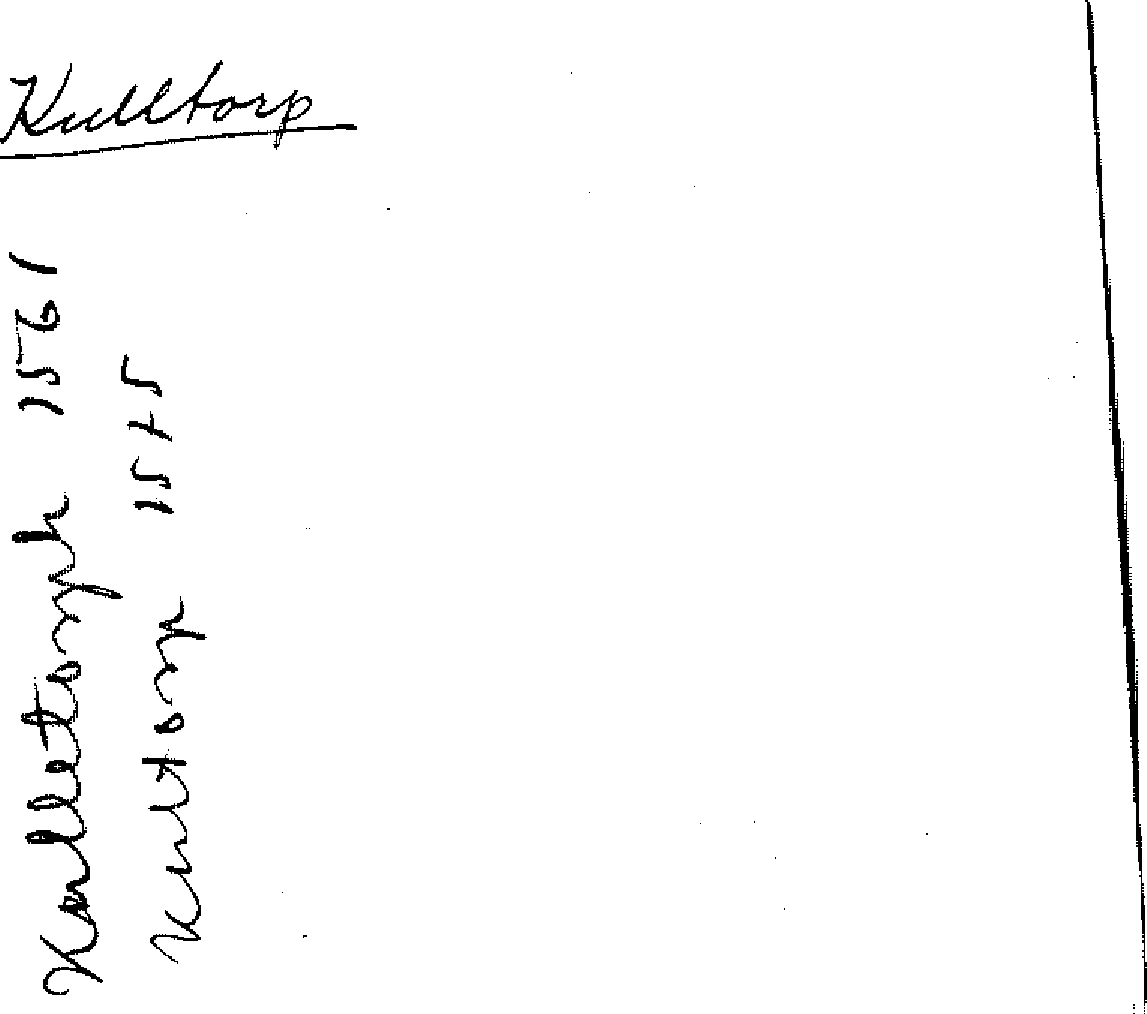 Kulltorp
Kulletorph 1561
Kultorp 1545